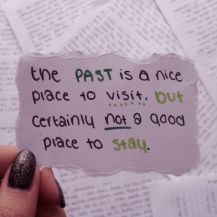 the PAST is a nice
place to visit, but
certainly not a good
place to stay.